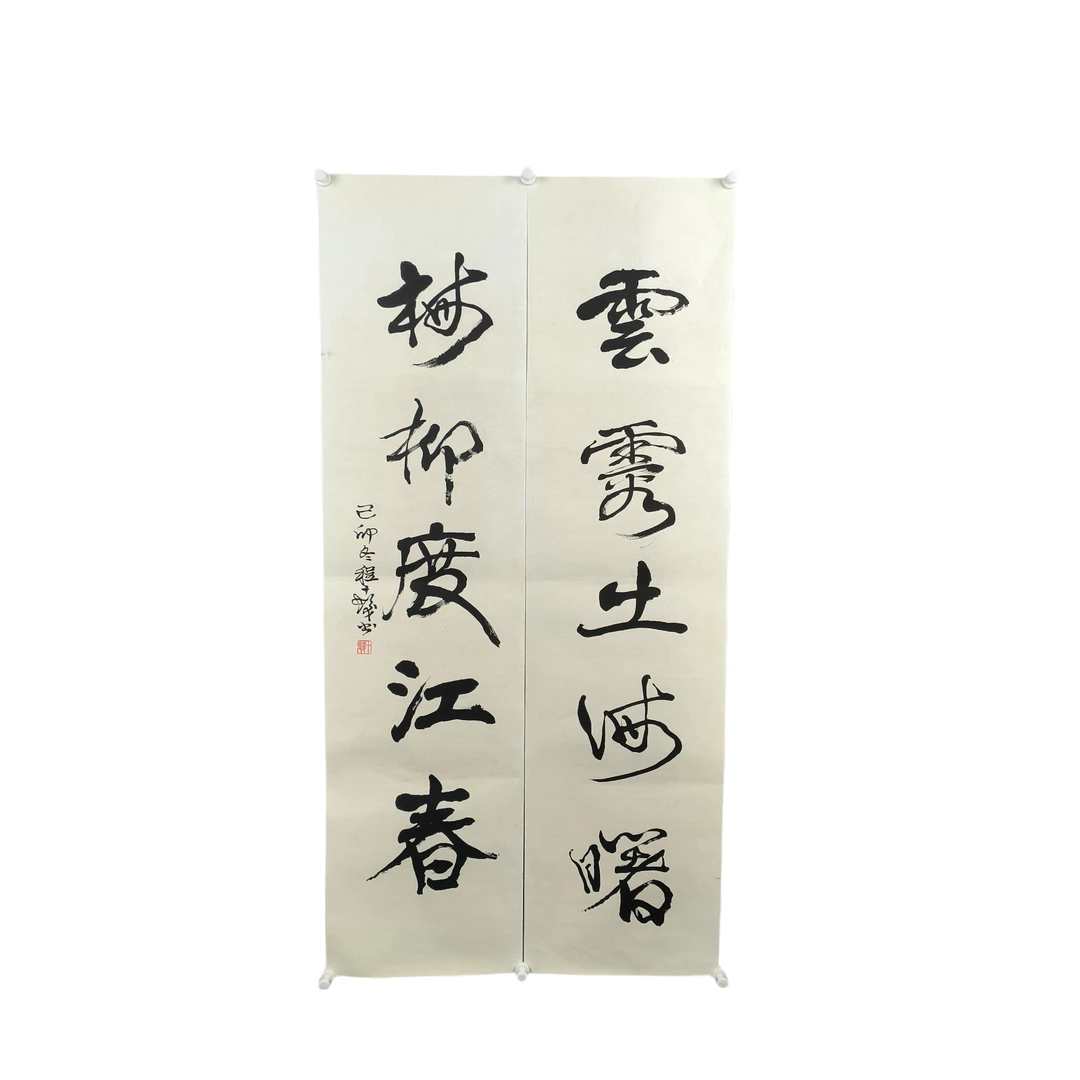 雲霞出海曙
梅柳度江春
己卯冬程十髮書